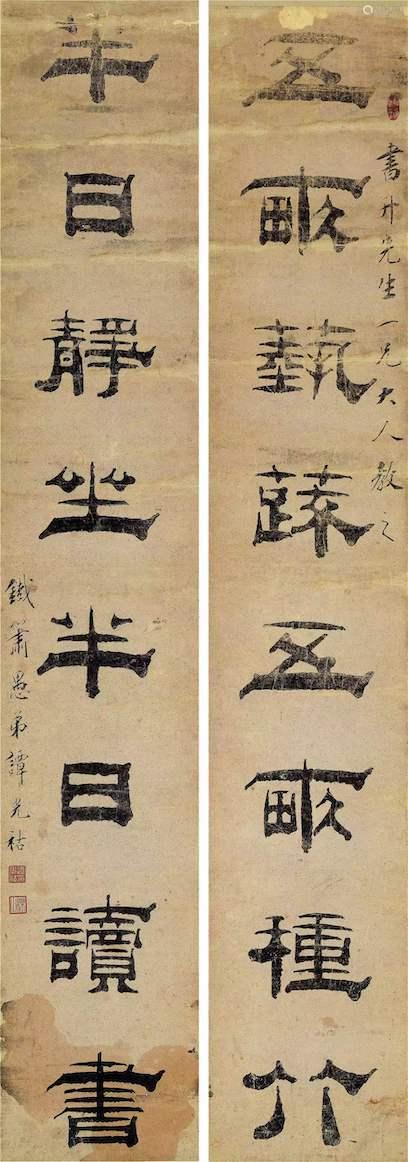 五畝蓺蔬五畝種竹
書升先生一兄大人教之
半日靜坐半日讀書
鐵簫愚弟譚光祜